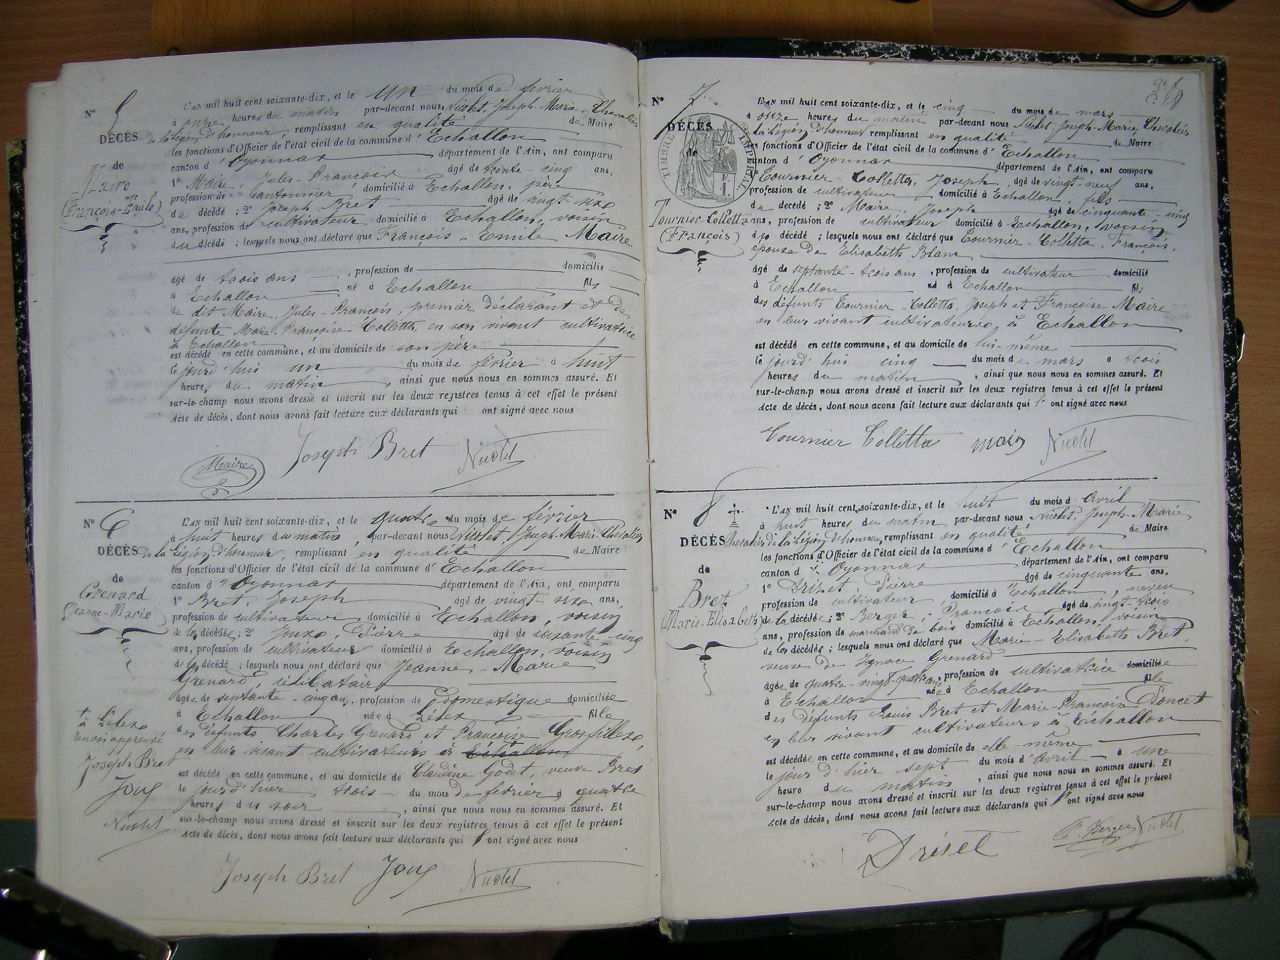 N° 5
DÉCÈS
de
Maire
(François-Emile)
L'AN mil huit cent soixante-dix, et le un du mois de février
à onze heures du matin par-devant nous, Nicolet, Joseph-Marie, Chevalier
de la Légion d'honneur, remplissant en qualité de Maire
les fonctions d'Officier de l'état civil de la commune d'Echallon
canton d'Oyonnax département de l'Ain, ont comparu
1° Maire, Jules-François âgé de trente-cinq ans,
profession de cantonnier domicilié à Echallon, père
du décédé ; 2° Joseph Bret âgé de vingt-six
ans, profession de cultivateur domicilié à Echallon, voisin
du décédé ; lesquels nous ont déclaré que François-Emile Maire
âgé de trois ans, profession de domicilié
à Echallon né à Echallon fils
de dit Maire, Jules-François, premier déclarant et de
défunte Maire-Françoise-Colletta, en son vivant cultivatrice
à Echallon
est décédé en cette commune, et au domicile de son père
le jourd'hui un du mois de février à huit
heures du matin, ainsi que nous nous en sommes assuré. Et
sur-le-champ nous avons dressé et inscrit sur les deux registres tenus à cet effet le présent
acte de décès, dont nous avons fait lecture aux déclarants qui ont signé avec nous
Maire Joseph Bret Nicolet
N° 6
DÉCÈS
de
Grenard
(Jeanne-Marie)
L'AN mil huit cent soixante-dix, et le quatre du mois de février
à huit heures du matin, par-devant nous Nicolet, Joseph-Marie Chevalier
de la Légion d'honneur, remplissant en qualité de Maire
les fonctions d'Officier de l'état civil de la commune d'Echallon
canton d'Oyonnax département de l'Ain, ont comparu
1° Bret, Joseph âgé de vingt-six ans,
profession de cultivateur domicilié à Echallon, voisin
de la décédée ; 2° Pierre âgé de soixante-cinq
ans, profession de cultivateur domicilié à Echallon, voisin
de la décédée ; lesquels nous ont déclaré que Jeanne-Marie
Grenard, célibataire
âgée de septante-cinq ans, profession de domestique domiciliée
à Echallon née à fille
des défunts Charles Grenard et Françoise
en leur vivant cultivateurs à Echallon
est décédé en cette commune, et au domicile de Claudine Godet, veuve Bret
le jour d'hier, trois du mois de février à quatre
heures du soir, ainsi que nous nous en sommes assuré. Et
sur-le-champ nous avons dressé et inscrit sur les deux registres tenus à cet effet le présent
acte de décès, dont nous avons fait lecture aux déclarants qui ont signé avec nous
Joseph Bret
Nicolet
Joseph Bret Nicolet
N° 7
DÉCÈS
de
Tournier-Colletta
(François)
TIMBRE IMPERIAL
L'AN mil huit cent soixante-dix, et le cinq du mois de mars
à onze heures du matin par-devant nous Nicolet, Joseph-Marie, Chevalier
de la Légion d'honneur remplissant en qualité de Maire
les fonctions d'Officier de l'état civil de la commune d'Echallon
canton d'Oyonnax département de l'Ain, ont comparu
Tournier-Colletta, Joseph âgé de vingt-neuf ans,
profession de cultivateur domicilié à Echallon, fils
du décédé ; 2° Maire, Joseph âgé de cinquante-cinq
ans, profession de cultivateur domicilié à Echallon, voisin
du décédé ; lesquels nous ont déclaré que Tournier-Colletta, François,
époux de Elisabeth Blanc
âgé de septante-trois ans, profession de cultivateur domicilié
à Echallon né à Echallon fils
des défunts Tournier-Colletta, Joseph et Françoise Maire
en leur vivant cultivateurs à Echallon
est décédé en cette commune, et au domicile de lui-même
le jourd'hui cinq du mois de mars à trois
heures du matin, ainsi que nous nous en sommes assuré. Et
sur-le-champ nous avons dressé et inscrit sur les deux registres tenus à cet effet le présent
acte de décès, dont nous avons fait lecture aux déclarants qui ont signé avec nous
Tournier Colletta Nicolet
N° 8
DÉCÈS
de
Bret
(Marie-Elisabeth)
L'AN mil huit cent soixante-dix, et le huit du mois d'avril
à huit heures du matin par-devant nous Nicolet, Joseph-Marie
Chevalier de la Légion d'honneur, remplissant en qualité de Maire
les fonctions d'Officier de l'état civil de la commune d'Echallon
canton d'Oyonnax département de l'Ain, ont comparu
1° Driset Pierre âgé de cinquante ans,
profession de cultivateur domicilié à Echallon, neveu
de la décédée ; 2° Berger François âgé de vingt-trois
ans, profession de marchand de bois domicilié à Echallon, voisin
de la décédée ; lesquels nous ont déclaré que Marie-Elisabeth Bret
veuve de Ignace Grenard
âgée de quatre-vingt-quatre, profession de cultivatrice domiciliée
à Echallon née à Echallon fille
des défunts Louis Bret et Marie-Françoise Poncet
en leur vivant cultivateurs à Echallon
est décédé en cette commune, et au domicile de elle-même
le jour d'hier sept du mois d'avril à une
heure du matin, ainsi que nous nous en sommes assuré. Et
sur-le-champ nous avons dressé et inscrit sur les deux registres tenus à cet effet le présent
acte de décès, dont nous avons fait lecture aux déclarants qui ont signé avec nous
Drisel F. Berger Nicolet